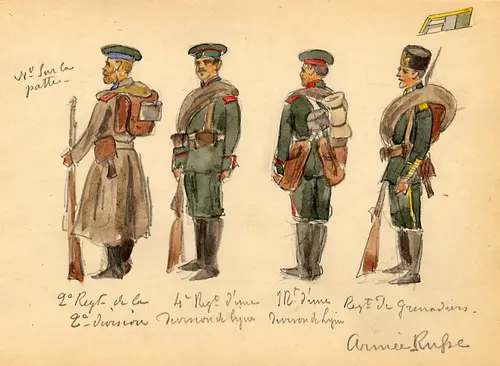 No Sur la
patte -
2e Regt. de la
2e division
4e Regt. d'une
division de ligne
1 Rt. d'une
division de ligne
Regt. De Grenadiers -
Armée Russe